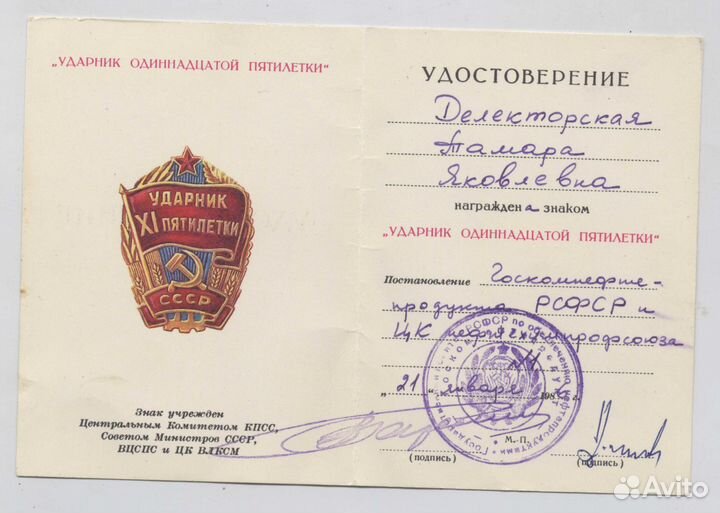 „УДАРНИК ОДИННАДЦАТОЙ ПЯТИЛЕТКИ“
УДАРНИК
XI ПЯТИЛЕТКИ
СССР
Знак учрежден
Центральным Комитетом КПСС,
Советом Министров СССР,
ВЦСПС и ЦК ВЛКСМ
УДОСТОВЕРЕНИЕ
Делекторская
Тамара
Яковлевна
награжден а знаком
„УДАРНИК ОДИННАДЦАТОЙ ПЯТИЛЕТКИ“
Постановление Госкомнефте-
продукта РСФСР и
ЦК нефтехимпрофсоюза
„21“ января 198 г.
М. П.
(подпись)
(подпись)
Avito